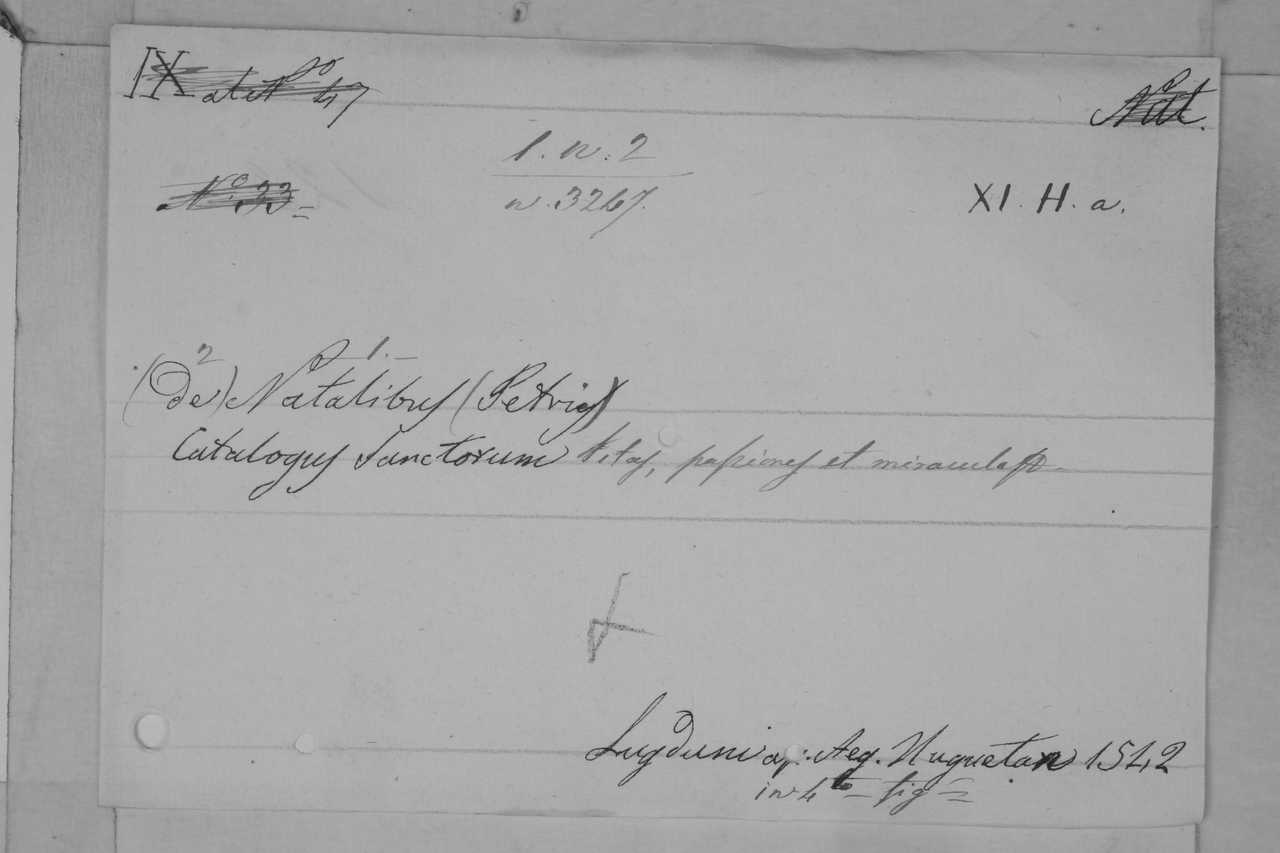 IX at N° 47
Nat.
1. n. 2
N° 33
n. 3267.
XI. H. a.
2 1.
(De) Natalibus (Petrus)
Catalogus Sanctorum vitas, passiones et miracula
Lugduni ap: Aeg. Huguetan 1542
in 4to fig